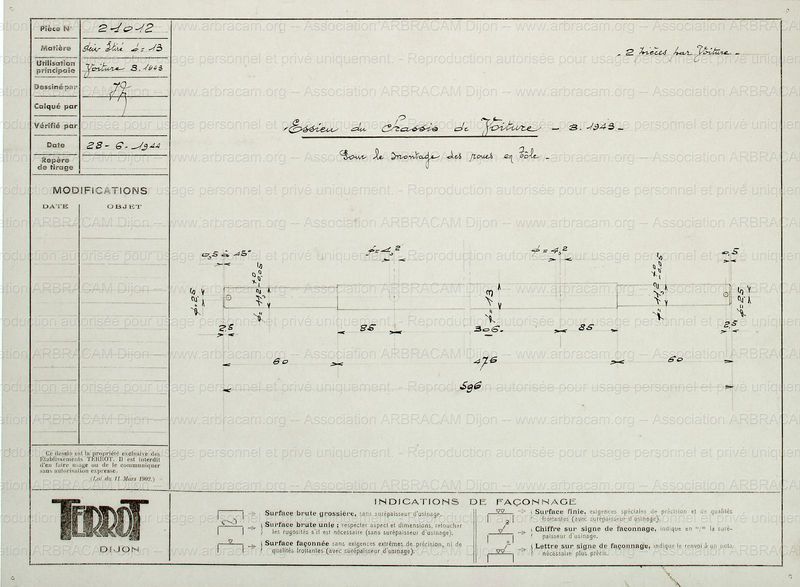 Pièce N° 21012
Matière Acier Étiré ø = 13
Utilisation principale Voiture 3.1943
Dessiné par
Calqué par
Vérifié par
Date 28-6-1944
Repère de tirage
MODIFICATIONS
DATE OBJET
2 pièces par Voiture.
Essieu du Chassis de Voiture - 3.1943 -
Pour le montage des roues en Tôle.
0,5 à 45° ø=4,2 ø=4,2 0,5
ø=2,5 ø=11,2 +0 -0,05 ø=13 ø=11,2 +0 -0,05 ø=2,5
2,5 85 306 85 2,5
60 476 60
596
Ce dessin est la propriété exclusive des
Etablissements TERROT. Il est interdit
d'en faire usage ou de le communiquer
sans autorisation expresse.
(Loi du 11 Mars 1902.)
TERROT
DIJON
INDICATIONS DE FAÇONNAGE
Surface brute grossière, sans surépaisseur d'usinage.
Surface brute unie; respecter aspect et dimensions, retoucher
les rugosités s'il est nécessaire (sans surépaisseur d'usinage).
Surface façonnée sans exigences extrêmes de précision, ni de
qualités frottantes (avec surépaisseur d'usinage).
Surface finie, exigences spéciales de précision et de qualités
frottantes (avec surépaisseur d'usinage).
Chiffre sur signe de façonnage, indique en m/m la surépaisseur
d'usinage.
Lettre sur signe de façonnage, indique le renvoi à un nota,
nécessaire plus précis.
www.arbracam.org -- Association ARBRACAM Dijon -- www.arbracam.org -- Association ARBRACAM Dijon
Reproduction autorisée pour usage personnel et privé uniquement.